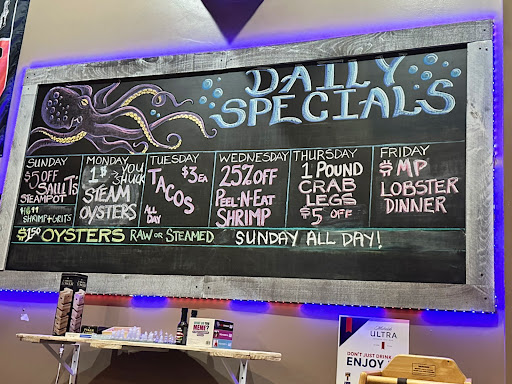 DAILY
SPECIALS
SUNDAY
$5 OFF
STEAMPOT
SHRIMP & GRITS
MONDAY
1$ YOU
SHUCK
STEAM
OYSTERS
TUESDAY
$3 EA
TACOS
ALL
DAY
WEDNESDAY
25% OFF
PEEL-N-EAT
SHRIMP
THURSDAY
1 POUND
CRAB
LEGS
$5 OFF
FRIDAY
$ MP
LOBSTER
DINNER
$1.50 OYSTERS RAW OR STEAMED SUNDAY ALL DAY!
ULTRA
DON'T JUST DRINK
ENJOY